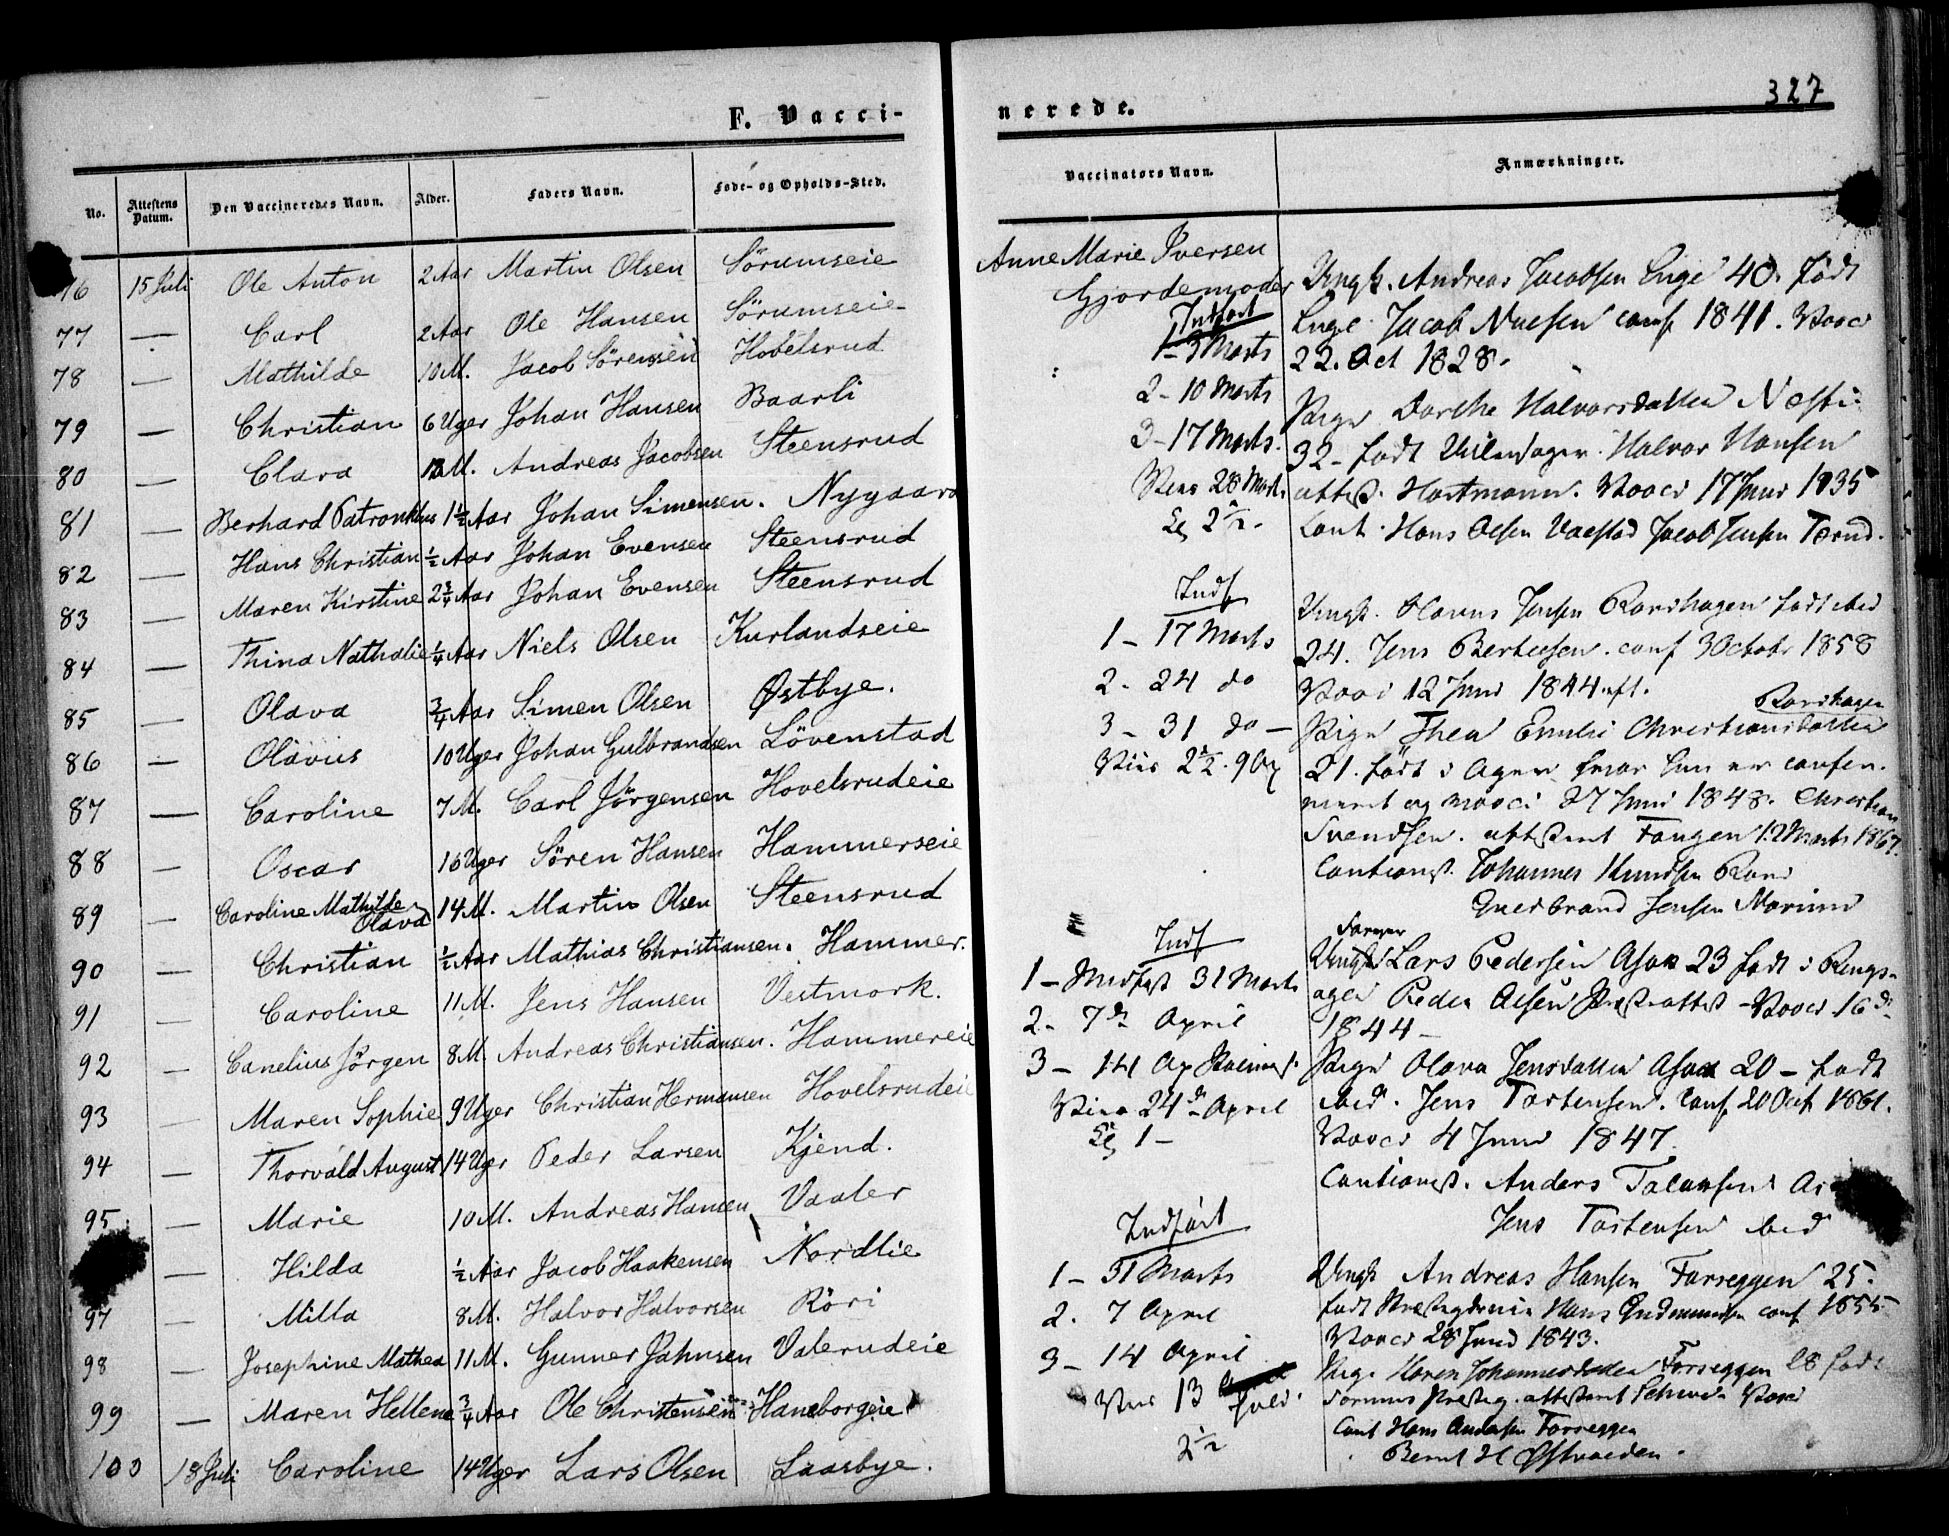 F. Vacci-
No. Attestens Datum. Den Vaccineredes Navn. Alder. Faders Navn. Føde- og Opholds-Sted.
76 15 Juli Ole Anton 2 Aar Martin Olsen Sörumseie
77 — Carl 2 Aar Ole Hansen Sörumseie
78 — Mathilde 10 M. Jacob Sörensen Hobelsrud
79 — Christian 6 Uger Johan Hansen Baarli
80 — Clara M. Andreas Jacobsen Steensrud
81 — Berhard 1½ Aar Johan Simensen. Nygaard
82 — Hans Christian ½ Aar Johan Evensen Steensrud
83 — Maren Kirstine 2¾ Aar Johan Evensen Steensrud
84 — Thina Nathalie ¼ Aar Niels Olsen Kurlandseie
85 — Olava ¾ Aar Simen Olsen Østbye.
86 — Olavus 10 Uger Johan Gulbrandsen Lövenstad
87 — Caroline 7 M. Carl Jörgensen Hovelsrudeie
88 — Oscar 16 Uger Sören Hansen Hammerseie
89 — Caroline Mathilde Olava 14 M. Martin Olsen Steensrud
90 — Christian ½ Aar Mathias Christiansen. Hammer.
91 — Caroline 11 M. Jens Hansen Vestmork.
92 — Canelius Jörgen 8 M. Andreas Christiansen. Hammereie
93 — Maren Sophie 9 Uger Christian Hermansen Hovelsrudeie
94 — Thorvald August 14 Uger Peder Larsen Kjend.
95 — Marie 10 M. Andreas Hansen Vaaler
— Hilda ½ Aar Jacob Haakensen Nordlie
97 — Milla 8 M. Halvor Halvorsen Röri
98 — Josephine Mathea 11 M. Gunner Jahnsen Valerudeie
99 — Maren Hellene ¾ Aar Ole Christensen Haneborgeie
100 18 Juli Caroline 14 Uger Lars Olsen Laasbye.
327
nerede.
Vaccinators Navn. Anmærkninger.
Anne Marie Iversen
Gjordemoder
Indført
1 - 3 Marts
2 - 10 Marts
3 - 17 Marts.
Viede 28 Marts
2½.
Ungk. Andreas Jacobsen Enge 40. født
Enge Jacob conf 1841. Vacc
22. Oct 1828.
Pige Dorthe Halvorsdatter
32 - født Halvor Hansen
attest. Hartmann. Vacci 17 Juni 1835
Caut. Hans Olsen Jacob Jensen
Indf
1 - 17 Marts
2. 24 do
3 - 31 do -
Ungk. Jensen Ravnhagen født ibid
24. Jens Bertelsen. conf 3 Octobr 1858
Vacci 12 Juni 1844 aft.
Pige Thea Emilie Christiansdatter Ravnhagen
21. født i Ager hvor hun er confir
meret og vacci 27 Juni 1848. Christian
Svendsen. attesteret Fangen 12 Marts 1867.
Cautionist. Johannes Knudsen
Gulbrand Jensen
Indf
1 - Midfast 31 Marts
2 - 7de April
3 - 14 Ap Palmes.
Viede 24de April
1 -
Farver
Ungk Lars Pedersen 23 født i Rings-
ager Peder Olsen Præsteattest - Vacci 16
1844 -
Pige Olava Jensdatter 20 - født
ibid. Jens Torstensen. Conf 20 Oct 1861.
Vacci 4 Juni 1847.
Cautionist. Anders
Jens Torstensen ibid
Indført
1 - 31 Marts
2. 7 April
3 - 14 April
2½
Ungk Andreas Hansen Farseggen 25.
født Hans Gudmundsen conf 1855
Vacci 28 Juni 1843.
Pige Karen Johannesdatter Farseggen 28 født
Caut Hans Andersen Farseggen
Bernt H